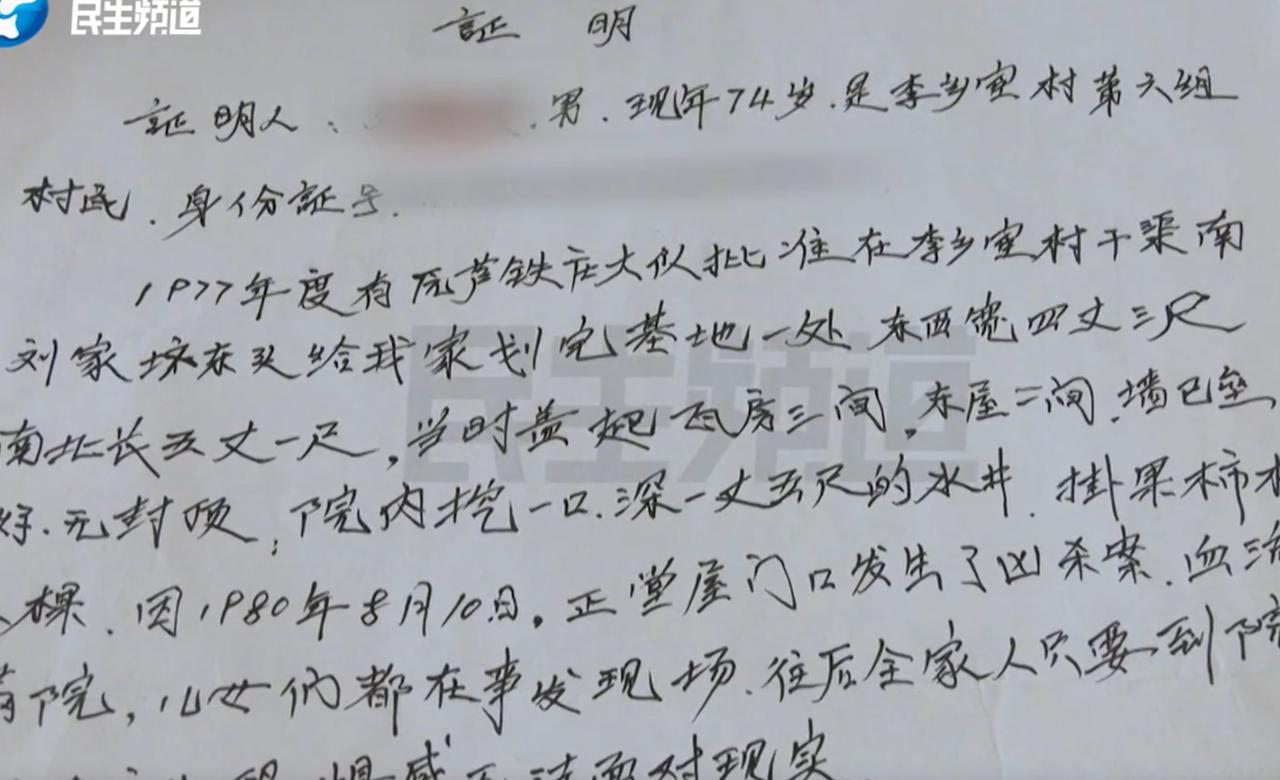 民生频道
証 明
証明人： 男．现年74岁．是李乡宦村第六组
村民．身份証号．
1977年度有原芦铁庄大队批准在李乡宦村干渠南
刘家坟东头给我家划宅基地一处 东西宽四丈三尺
南北长五丈一尺，当时盖起瓦房三间，东屋二间．墙已垒
好．无封顶；院内挖一口．深一丈五尺的水井．掛果柿木
棵．因1980年8月10日，正堂屋门口发生了凶杀案．血流
满院，儿女们都在事发现场．往后全家人只要到院
感 无法面对现实
民生频道